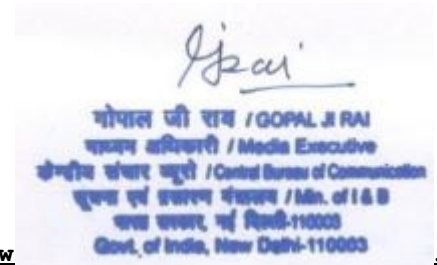 गोपाल जी राय / GOPAL JI RAI
माध्यम अधिकारी / Media Executive
केन्द्रीय संचार ब्यूरो / Central Bureau of Communication
सूचना एवं प्रसारण मंत्रालय / Min. of I & B
भारत सरकार, नई दिल्ली-110003
w Govt. of India, New Delhi-110003